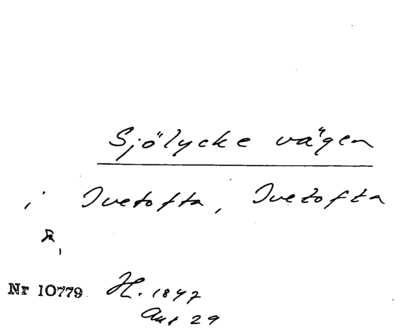 Sjölycke vägen
i Ivetofta, Ivetofta
R,
Nr 10779 H. 1847
Aut 29